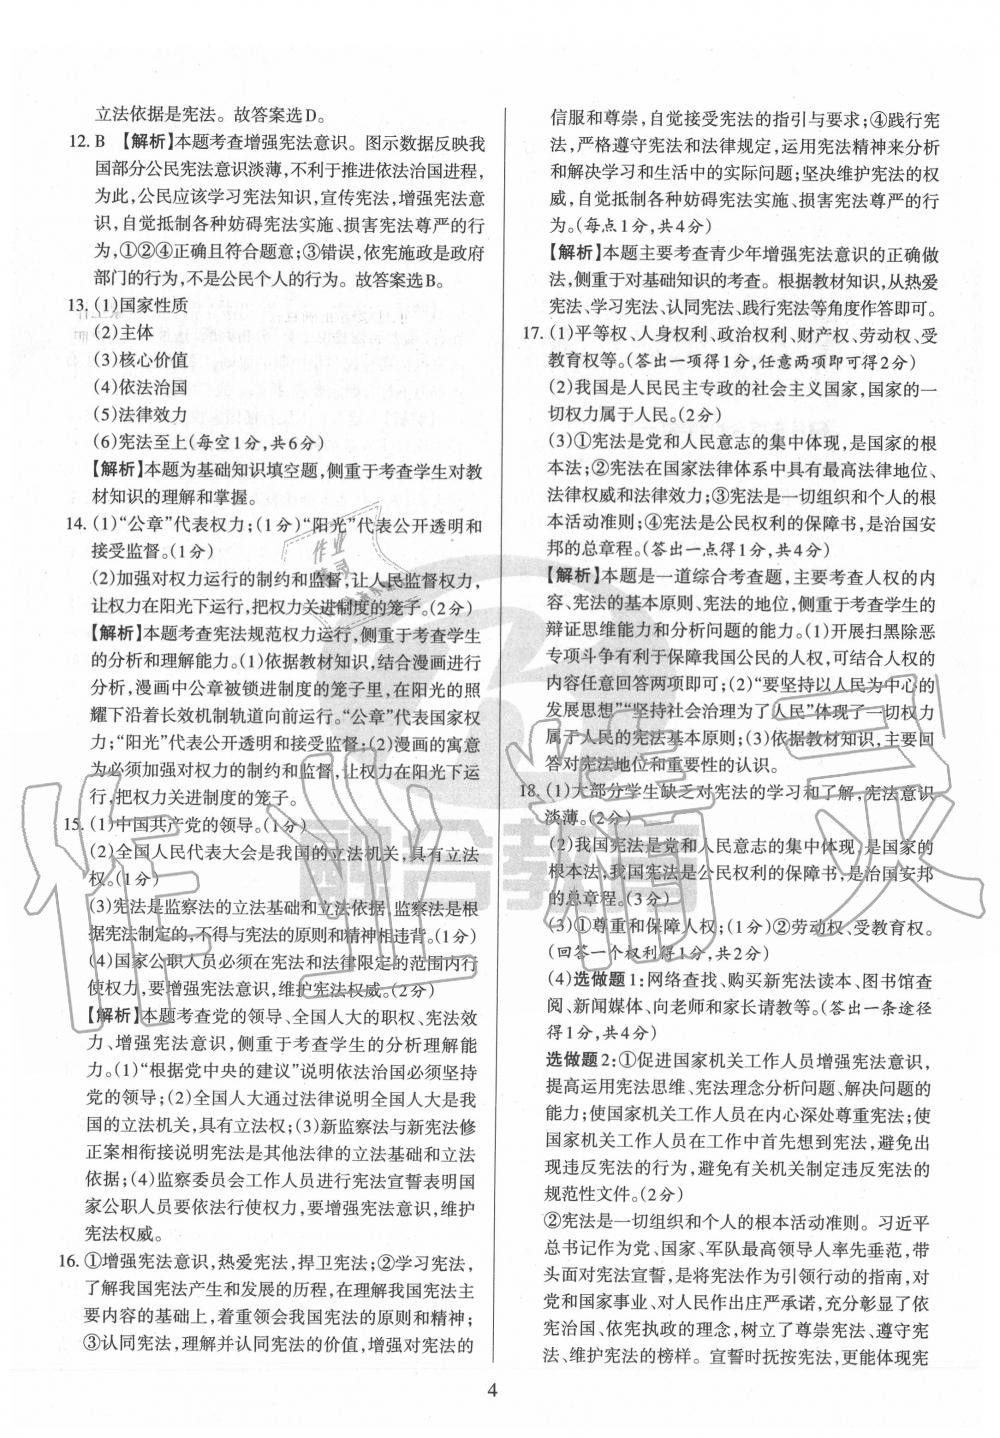 立法依据是宪法。故答案选D。
12. B 【解析】本题考查增强宪法意识。图示数据反映我
国部分公民宪法意识淡薄,不利于推进依法治国进程,
为此,公民应该学习宪法知识,宣传宪法,增强宪法意
识,自觉抵制各种妨碍宪法实施、损害宪法尊严的行
为,①②④正确且符合题意;③错误,依宪施政是政府
部门的行为,不是公民个人的行为。故答案选B。
13. (1)国家性质
(2)主体
(3)核心价值
(4)依法治国
(5)法律效力
(6)宪法至上(每空1分,共6分)
【解析】本题为基础知识填空题,侧重于考查学生对教
材知识的理解和掌握。
14. (1)“公章”代表权力;(1分)“阳光”代表公开透明和
接受监督。(1分)
(2)加强对权力运行的制约和监督,让人民监督权力,
让权力在阳光下运行,把权力关进制度的笼子。(2分)
【解析】本题考查宪法规范权力运行,侧重于考查学生
的分析和理解能力。(1)依据教材知识,结合漫画进行
分析,漫画中公章被锁进制度的笼子里,在阳光的照
耀下沿着长效机制轨道向前运行。“公章”代表国家权
力;“阳光”代表公开透明和接受监督;(2)漫画的寓意
为必须加强对权力的制约和监督,让权力在阳光下运
行,把权力关进制度的笼子。
15. (1)中国共产党的领导。(1分)
(2)全国人民代表大会是我国的立法机关,具有立法
权。(1分)
(3)宪法是监察法的立法基础和立法依据,监察法是根
据宪法制定的,不得与宪法的原则和精神相违背。(1分)
(4)国家公职人员必须在宪法和法律限定的范围内行
使权力,要增强宪法意识,维护宪法权威。(2分)
【解析】本题考查党的领导、全国人大的职权、宪法效
力、增强宪法意识,侧重于考查学生的分析理解能
力。(1)“根据党中央的建议”说明依法治国必须坚持
党的领导;(2)全国人大通过法律说明全国人大是我
国的立法机关,具有立法权;(3)新监察法与新宪法修
正案相衔接说明宪法是其他法律的立法基础和立法
依据;(4)监察委员会工作人员进行宪法宣誓表明国
家公职人员要依法行使权力,要增强宪法意识,维护
宪法权威。
16. ①增强宪法意识,热爱宪法,捍卫宪法;②学习宪法,
了解我国宪法产生和发展的历程,在理解我国宪法主
要内容的基础上,着重领会我国宪法的原则和精神;
③认同宪法,理解并认同宪法的价值,增强对宪法的
信服和尊崇,自觉接受宪法的指引与要求;④践行宪
法,严格遵守宪法和法律规定,运用宪法精神来分析
和解决学习和生活中的实际问题;坚决维护宪法的权
威,自觉抵制各种妨碍宪法实施、损害宪法尊严的行
为。(每点1分,共4分)
【解析】本题主要考查青少年增强宪法意识的正确做
法,侧重于对基础知识的考查。根据教材知识,从热爱
宪法、学习宪法、认同宪法、践行宪法等角度作答即可。
17. (1)平等权、人身权利、政治权利、财产权、劳动权、受
教育权等。(答出一项得1分,任意两项即可得2分)
(2)我国是人民民主专政的社会主义国家,国家的一
切权力属于人民。(2分)
(3)①宪法是党和人民意志的集中体现,是国家的根
本法;②宪法在国家法律体系中具有最高法律地位、
法律权威和法律效力;③宪法是一切组织和个人的根
本活动准则;④宪法是公民权利的保障书,是治国安
邦的总章程。(答出一点得1分,共4分)
【解析】本题是一道综合考查题,主要考查人权的内
容、宪法的基本原则、宪法的地位,侧重于考查学生的
辩证思维能力和分析问题的能力。(1)开展扫黑除恶
专项斗争有利于保障我国公民的人权,可结合人权的
内容任意回答两项即可;(2)“要坚持以人民为中心的
发展思想”“坚持社会治理为了人民”体现了一切权力
属于人民的宪法基本原则;(3)依据教材知识,主要回
答对宪法地位和重要性的认识。
18. (1)大部分学生缺乏对宪法的学习和了解,宪法意识
淡薄。(2分)
(2)我国宪法是党和人民意志的集中体现,是国家的
根本法;宪法是公民权利的保障书,是治国安邦
的总章程。(3分)
(3)①尊重和保障人权;(1分)②劳动权、受教育权。
(回答一个权利得1分,共2分)
(4)选做题1:网络查找、购买新宪法读本、图书馆查
阅、新闻媒体、向老师和家长请教等。(答出一条途径
得1分,共4分)
选做题2:①促进国家机关工作人员增强宪法意识,
提高运用宪法思维、宪法理念分析问题、解决问题的
能力;使国家机关工作人员在内心深处尊重宪法;使
国家机关工作人员在工作中首先想到宪法,避免出
现违反宪法的行为,避免有关机关制定违反宪法的
规范性文件。(2分)
②宪法是一切组织和个人的根本活动准则。习近平
总书记作为党、国家、军队最高领导人率先垂范,带
头面对宪法宣誓,是将宪法作为引领行动的指南,对
党和国家事业、对人民作出庄严承诺,充分彰显了依
宪治国、依宪执政的理念,树立了尊崇宪法、遵守宪
法、维护宪法的榜样。宣誓时抚按宪法,更能体现宪
4
融合教育
作业精灵